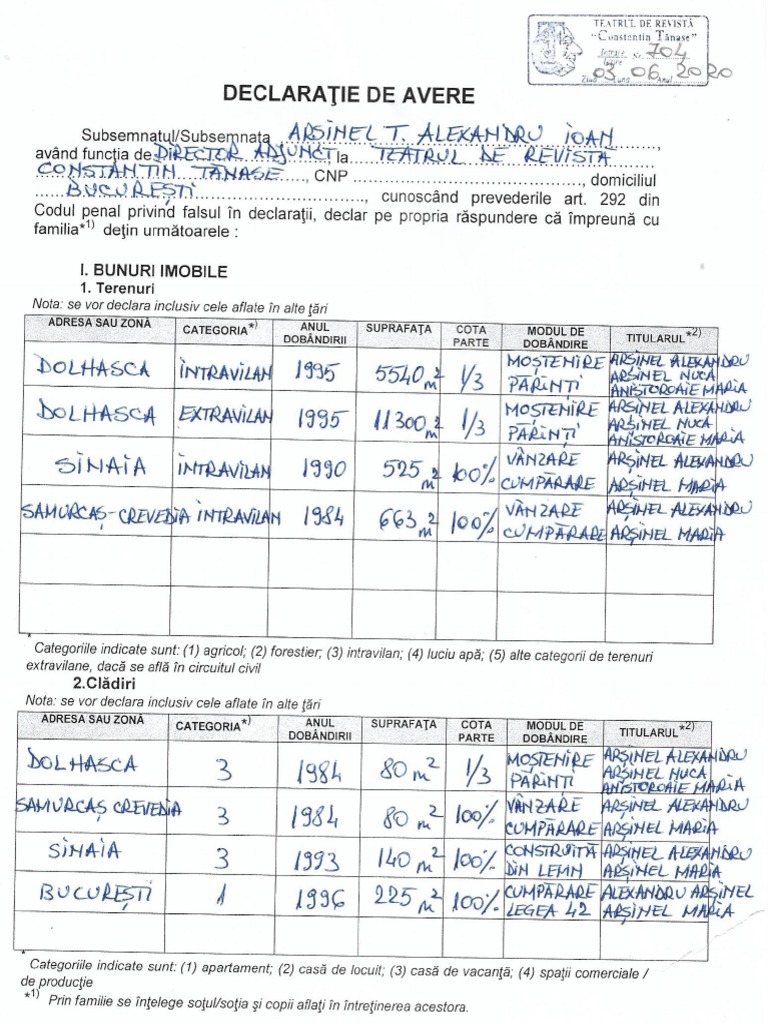 TEATRUL DE REVISTĂ
"Constantin Tănase"
Intrare Nr. 704
Ieșire
Ziua 03 Luna 06 Anul 2020
DECLARAŢIE DE AVERE
Subsemnatul/Subsemnata ARSINEL T. ALEXANDRU IOAN,
având funcţia de DIRECTOR ADJUNCT la TEATRUL DE REVISTA
CONSTANTIN TANASE, CNP ......................................., domiciliul
BUCUREȘTI, cunoscând prevederile art. 292 din
Codul penal privind falsul în declaraţii, declar pe propria răspundere că împreună cu
familia*1) deţin următoarele :
I. BUNURI IMOBILE
1. Terenuri
Nota: se vor declara inclusiv cele aflate în alte ţări
ADRESA SAU ZONĂ CATEGORIA*) ANUL DOBÂNDIRII SUPRAFAŢA COTA PARTE MODUL DE DOBÂNDIRE TITULARUL*2)
DOLHASCA INTRAVILAN 1995 5540 m2 1/3 MOȘTENIRE PĂRINȚI ARȘINEL ALEXANDRU ARȘINEL NUCA ANISTOROAIE MARIA
DOLHASCA EXTRAVILAN 1995 11300 m2 1/3 MOȘTENIRE PĂRINȚI ARȘINEL ALEXANDRU ARȘINEL NUCA ANISTOROAIE MARIA
SINAIA INTRAVILAN 1990 525 m2 100% VÂNZARE CUMPĂRARE ARȘINEL ALEXANDRU ARȘINEL MARIA
SAMURCAȘ-CREVEDIA INTRAVILAN 1984 663 m2 100% VÂNZARE CUMPĂRARE ARȘINEL ALEXANDRU ARȘINEL MARIA
* Categoriile indicate sunt: (1) agricol; (2) forestier; (3) intravilan; (4) luciu apă; (5) alte categorii de terenuri
extravilane, dacă se află în circuitul civil
2.Clădiri
Nota: se vor declara inclusiv cele aflate în alte ţări
ADRESA SAU ZONĂ CATEGORIA*) ANUL DOBÂNDIRII SUPRAFAŢA COTA PARTE MODUL DE DOBÂNDIRE TITULARUL*2)
DOLHASCA 3 1984 80 m2 1/3 MOȘTENIRE PĂRINȚI ARȘINEL ALEXANDRU ARȘINEL NUCA ANISTOROAIE MARIA
SAMURCAȘ CREVEDIA 3 1984 80 m2 100% VÂNZARE CUMPĂRARE ARȘINEL ALEXANDRU ARȘINEL MARIA
SINAIA 3 1993 140 m2 100% CONSTRUITĂ DIN LEMN ARȘINEL ALEXANDRU ARȘINEL MARIA
BUCUREȘTI 1 1996 225 m2 100% CUMPĂRARE LEGEA 42 ALEXANDRU ARȘINEL ARȘINEL MARIA
* Categoriile indicate sunt: (1) apartament; (2) casă de locuit; (3) casă de vacanţă; (4) spaţii comerciale /
de producţie
*1) Prin familie se înţelege soţul/soţia şi copii aflaţi în întreţinerea acestora.